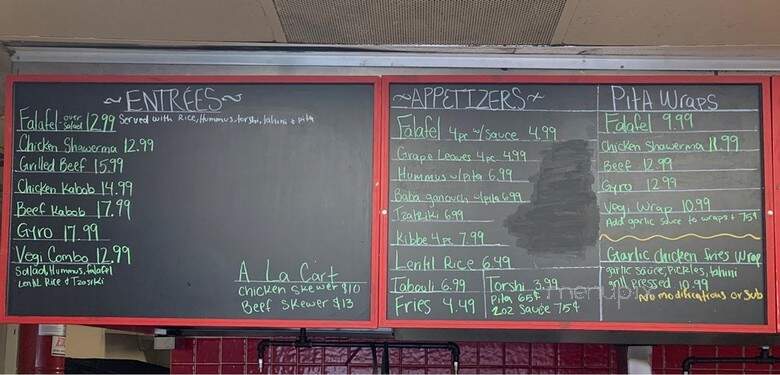 ~ENTRÉES~
Falafel over Salad 12.99 Served with Rice, Hummus, torshi, tahini + pita
Chicken Shawerma 12.99
Grilled Beef 15.99
Chicken Kabob 14.99
Beef Kabob 17.99
Gyro 17.99
Vegi Combo 12.99
Salad, Hummus, falafel
Lentil Rice & Tzatziki
A La Cart
Chicken Skewer $10
Beef Skewer $13
~APPETIZERS~
Falafel 4pc w/sauce 4.99
Grape Leaves 4pc 4.99
Hummus w/pita 6.99
Baba ganouch w/pita 6.99
Tzatziki 6.99
Kibbe 4pc 7.99
Lentil Rice 6.49
Tabouli 6.99
Fries 4.49
Torshi 3.99
Pita 65¢
2oz Sauce 75¢
Pita Wraps
Falafel 9.99
Chicken Shawerma 11.99
Beef 12.99
Gyro 12.99
Vegi Wrap 10.99
Add garlic sauce to wraps + 75¢
Garlic Chicken fries Wrap
garlic sauce, pickles, tahini
grill pressed 10.99
No modifications or Sub
menupix